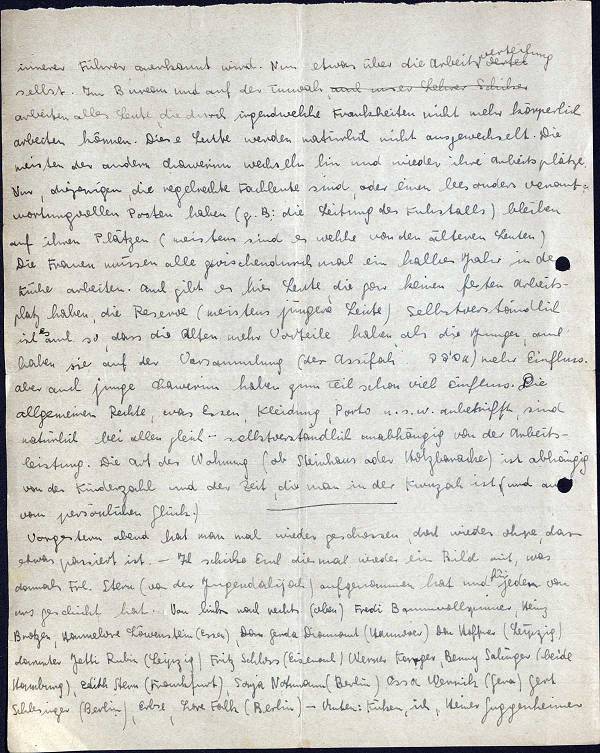 innerer Führer anerkannt wird. Nun etwas über die Arbeitsverteilung
selbst. Im Bureau und auf der Kwuzah, auch unser Lehrer Schiber
arbeiten alles Leute, die durch irgendwelche Krankheiten nicht mehr körperlich
arbeiten können. Diese Leute werden natürlich nicht ausgewechselt. Die
meisten der andern Chawerim wechseln hin und wieder ihre Arbeitsplätze.
Nur diejenigen, die regelrechte Fachleute sind, oder einen besonders verant-
wortungsvollen Posten haben (z. B: die Leitung des Kuhstalls) bleiben
auf ihren Plätzen (meistens sind es welche von den älteren Leuten)
Die Frauen müssen alle zwischendurch mal ein halbes Jahr in der
Küche arbeiten. Auch gibt es hier Leute, die gar keinen festen Arbeits-
platz haben, die Reserve (meistens jüngere Leute) Selbstverständlich
ist es auch so, dass die Alten mehr Vorteile haben, als die Jungen, auch
haben sie auf der Versammlung (der Assifah אסיפה) mehr Einfluss.
aber auch junge Chawerim haben zum Teil schon viel Einfluss. Die
allgemeinen Rechte, was Essen, Kleidung, Porto u.s.w. anbetrifft sind
natürlich bei allen gleich - selbstverständlich unabhängig von der Arbeits-
leistung. Die Art der Wohnung (ob Steinhaus oder Holzbaracke) ist abhängig
von der Kinderzahl und der Zeit, die man in der Kwuzah ist (und auch
vom persönlichen Glück.)
Vorgestern abend hat man mal wieder geschossen, dort wieder ohne, dass
etwas passiert ist. - Ich schicke Euch diesmal wieder ein Bild mit, was
damals Frl. Stern (von der Jugendalijah) aufgenommen hat und für jeden von
uns geschickt hat. Von links nach rechts (oben) Fredi Baumwollspinner, Heinz
Brotzen, Hannelore Löwenstein (Essen), Dan Gerda Diamant (Hannover) Dan Heffner (Leipzig)
darunter Jetti Rubin (Leipzig) Fritz Schloss (Eisenach) Werner Kemper, Benny Salinger (beide
Hamburg), Edith Stern (Frankfurt), Sonja Nothmann (Berlin) Ossa Wennich (Gera) Gert
Schlesinger (Berlin), Erbse, Lore Falk (Berlin) - Unten: Küken, ich, Heiner Guggenheimer